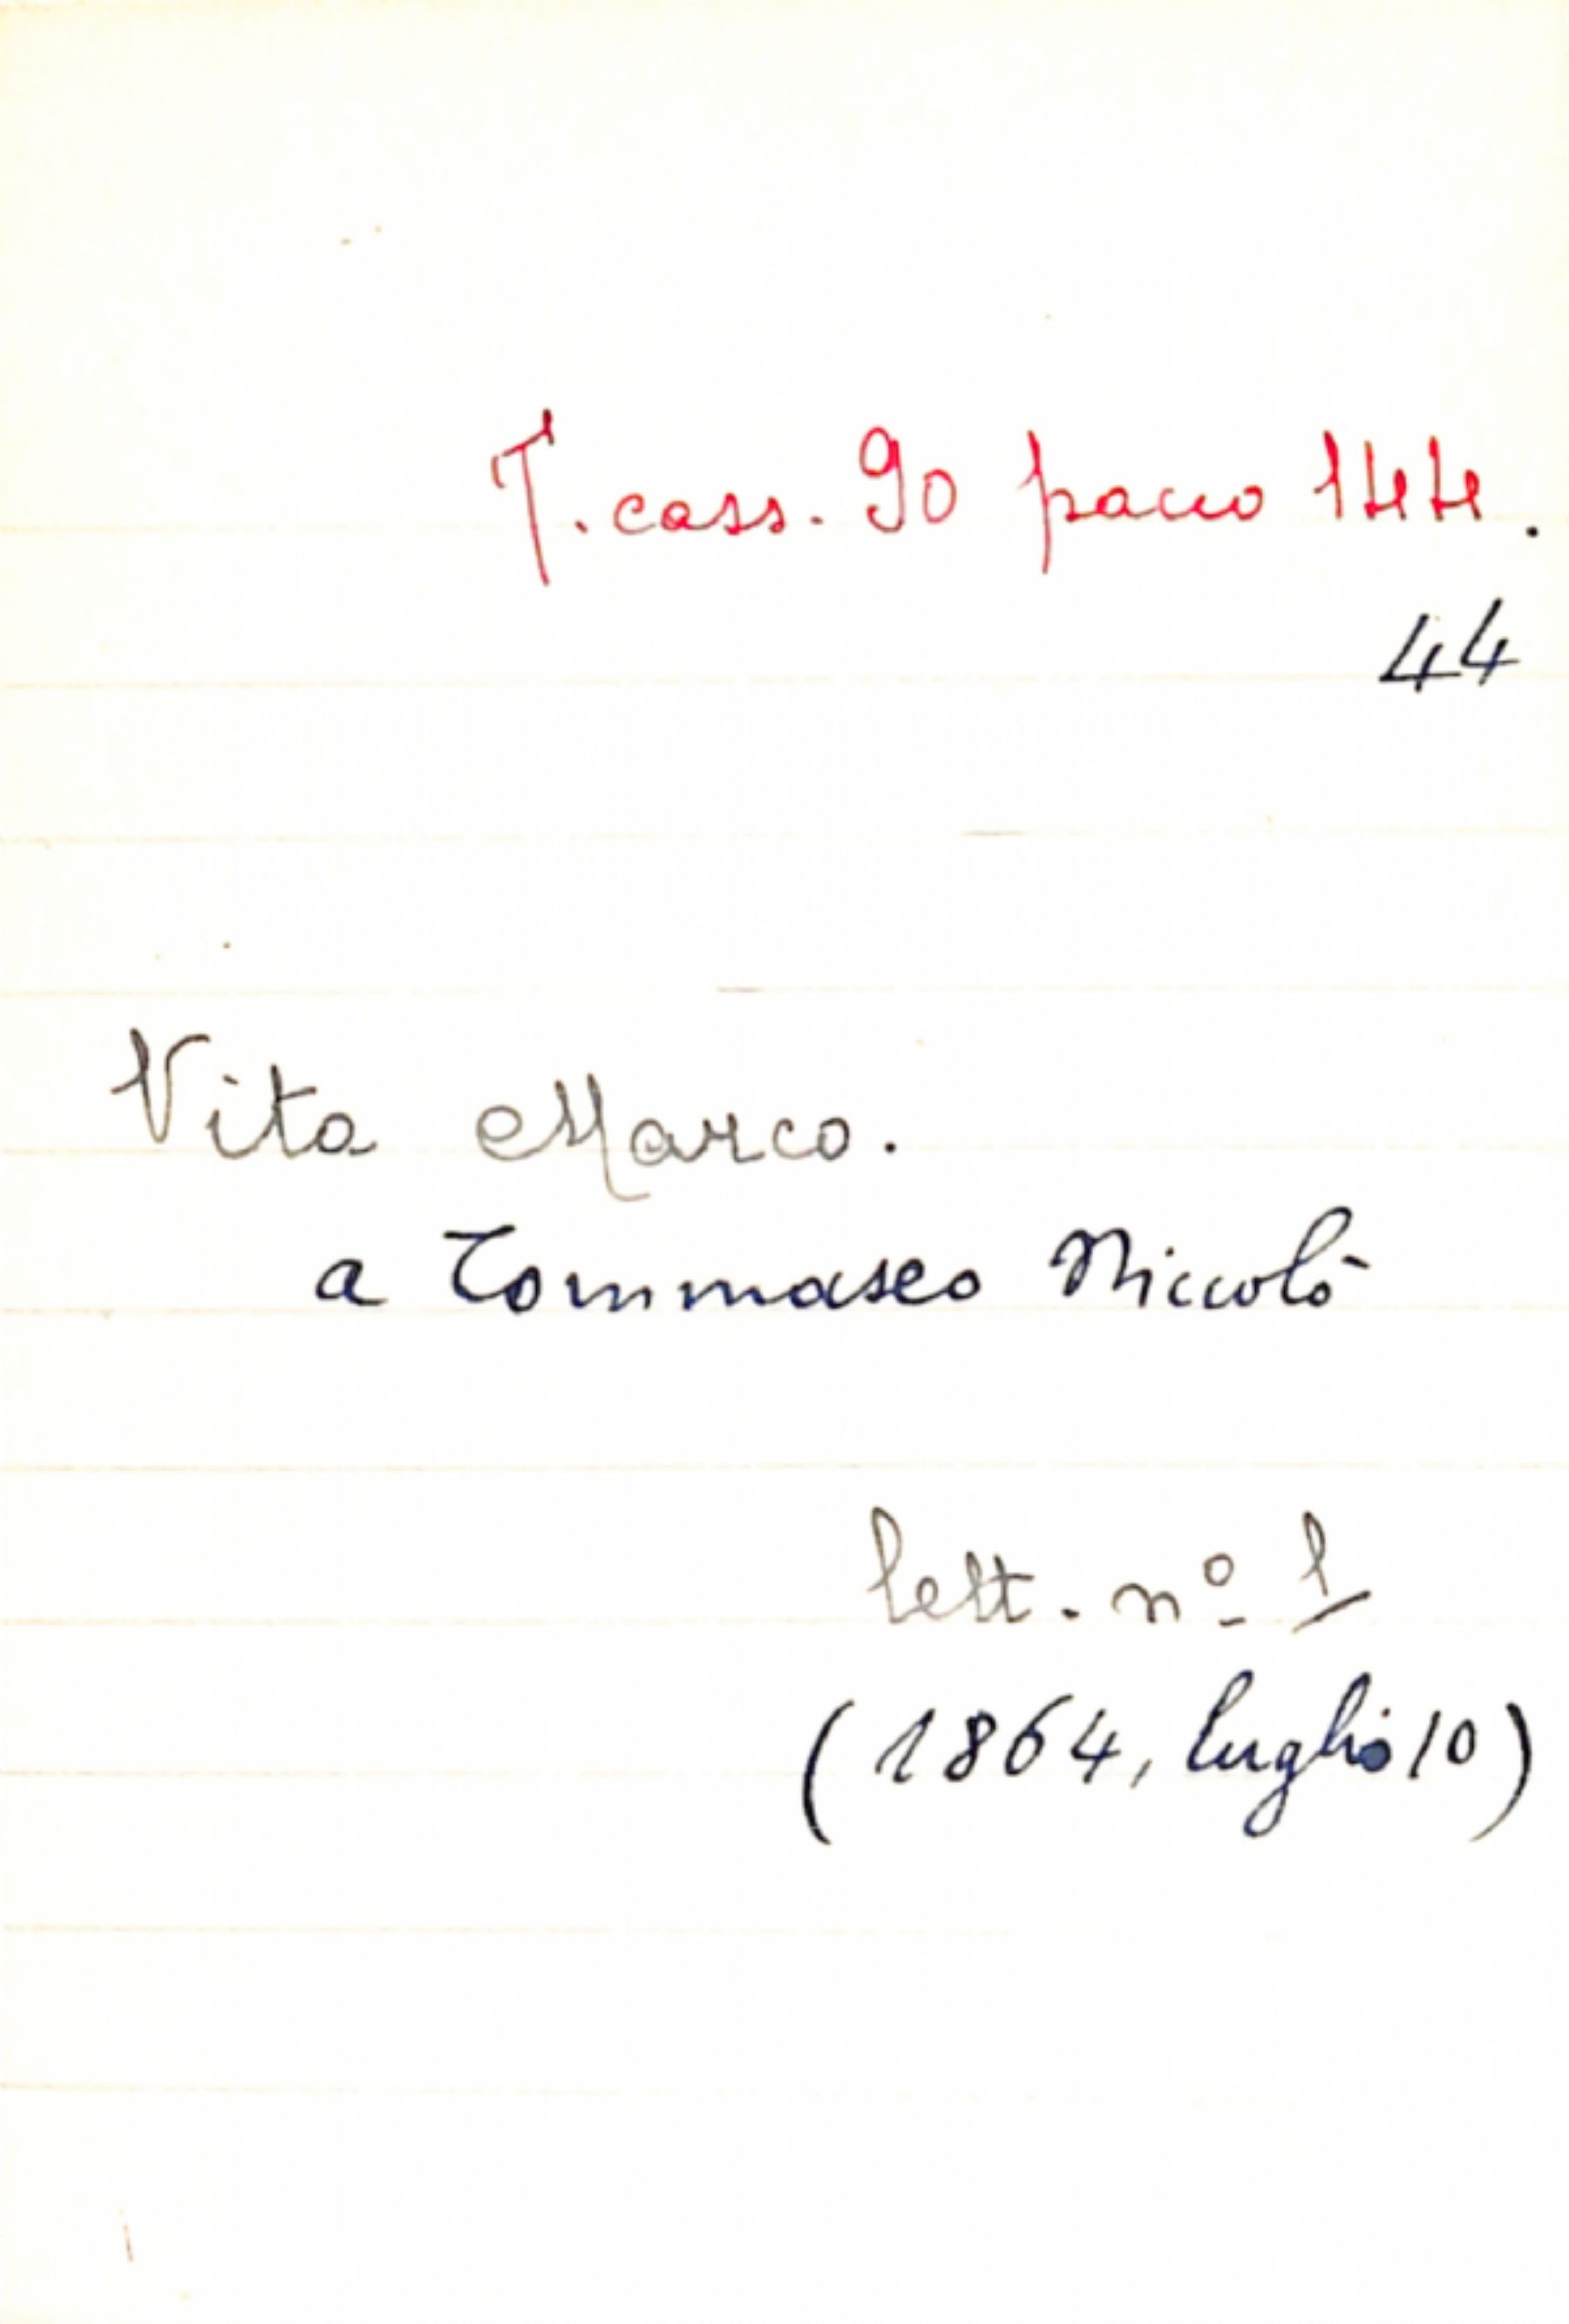 T. cass. 90 pacco 144.
44
Vita Marco.
a Tommaseo Niccolò
lett. nº 1
(1864, luglio 10)